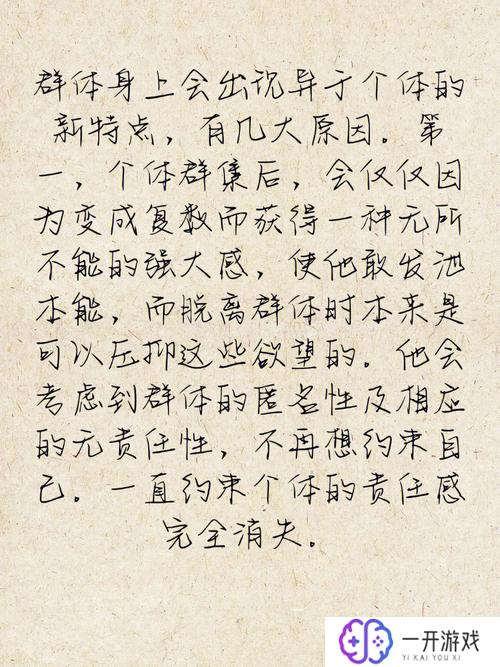 群体身上会出现异于个体的
新特点，有几大原因。第
一，个体群集后，会仅仅因
为变成复数而获得一种无所
不能的强大感，使他敢发泄
本能，而脱离群体时本来是
可以压抑这些欲望的。他会
考虑到群体的匿名性及相应
的无责任性，不再想约束自
己。一直约束个体的责任感
完全消失。
一开游戏
YI KAI YOU XI